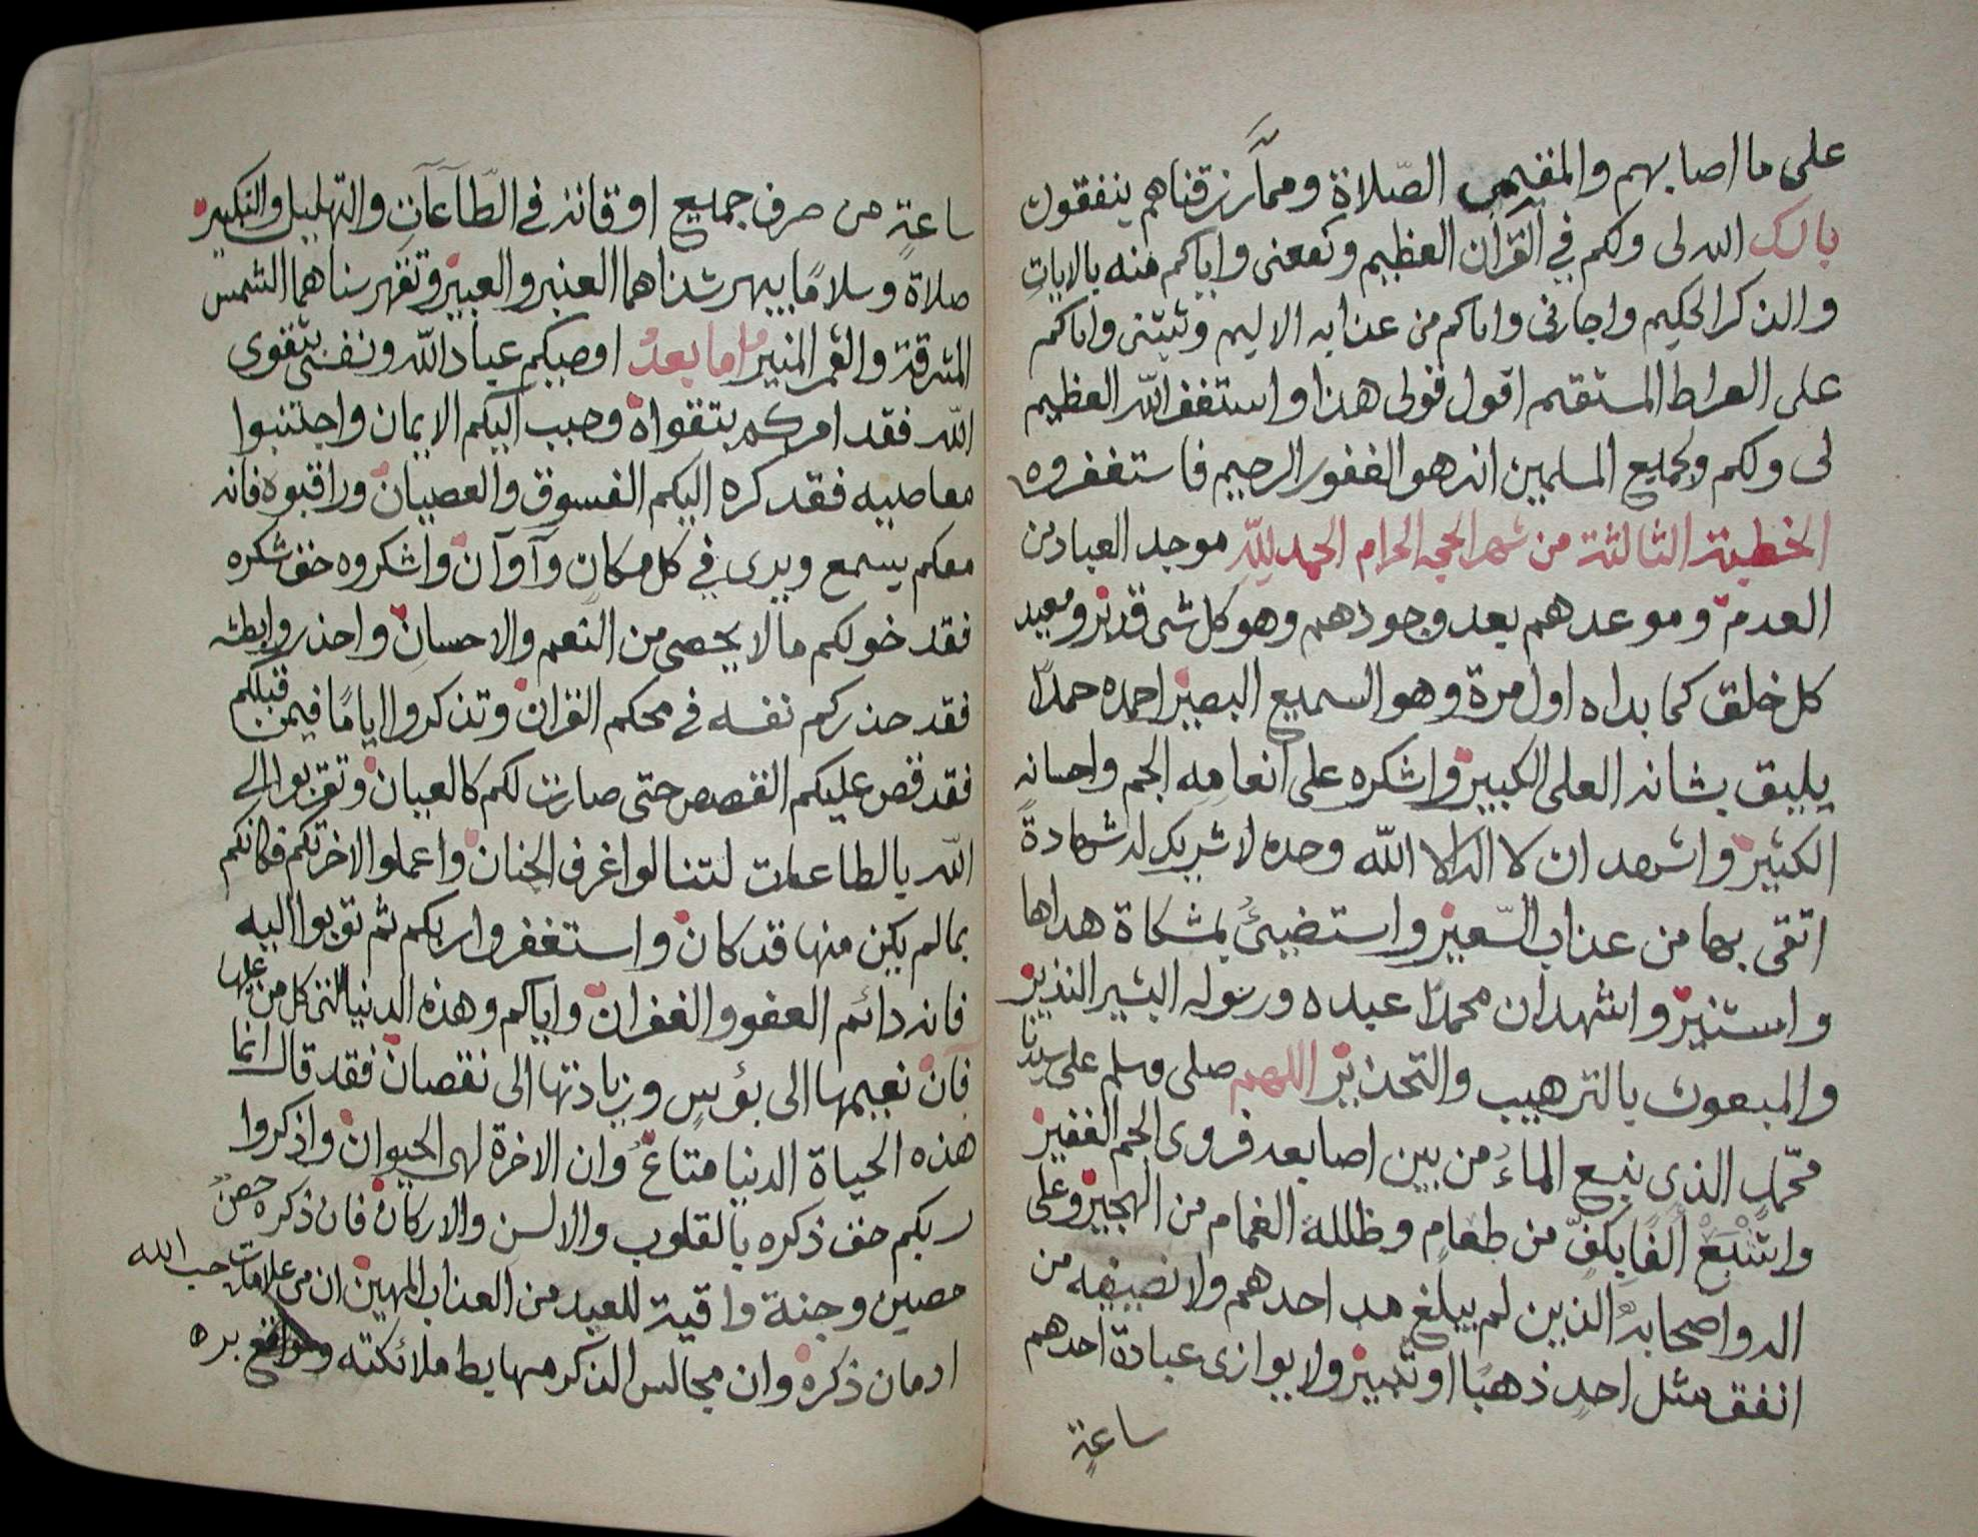 على ما اصابهم والمقيمى الصّلاة وممّا رزقناهم ينفقون
بارك الله لى ولكم فى القرآن العظيم ونفعنى واياكم منه بالايات
والذكر الحكيم واجارنى واياكم من عذابه الاليم وثبتنى واياكم
على الصراط المستقيم اقول قولى هذا واستغفر الله العظيم
لى ولكم ولجميع المسلمين انه هو الغفور الرحيم فاستغفروه
الخطبة الثالثة من شهر الحجه الحرام الحمد لله موجد العباد من
العدم وموعدهم بعد وجودهم وهو كل شى قدير ومعيد
كل خلق كما بداه اول مرة وهو السميع البصير احمده حمدًا
يليق بشانه العلى الكبير واشكره على انعامه الجم واحسانه
الكثير واشهد ان لا اله الا الله وحده لا شريك له شهادةً
اتقى بها من عذاب السّعير واستضيئُ بمشكاة هداها
واستنير واشهد ان محمدًا عبده ورسوله البشير النذير
والمبعوث بالترهيب والتحذير اللهم صلى وسلم على سيدنا
محمّدٍ الذى نبع الماءُ من بين اصابعه فروى الجم الغفير
واشبع الفًا بكفٍّ من طعامٍ وظلله الغمام من الهجير وعلى
اله واصحابه الذين لم يبلغ مد احدهم ولا نصيفه من
انفق مثل احدٍ ذهبًا او ثبير ولا يوازى عبادة احدهم
ساعةٍ
ساعةٍ من صرف جميع اوقاته فى الطّاعات والتهليل والتكبير
صلاة وسلامًا يبهر شذاهما العنبر والعبير وتقهر سناهما الشمس
المشرقة والقمر المنير اما بعدُ اوصيكم عباد الله ونفسى بتقوى
الله فقد امركم بتقواه وحبب اليكم الايمان واجتنبوا
معاصيه فقد كره اليكم الفسوق والعصيان وراقبوه فانه
معكم يسمع ويرى فى كل مكانٍ وآوآن واشكروه حق شكره
فقد خولكم ما لا يحصى من النعم والاحسان واحذروا بطشه
فقد حذركم نفسه فى محكم القران وتذكروا ايامًا فيمن قبلكم
فقد قص عليكم القصص حتى صارت لكم كالعيان وتقربوا الى
الله بالطاعات لتنالوا غرف الجنان واعملوا لاخرتكم فكانكم
بما لم يكن منها قد كان واستغفروا ربكم ثم توبوا اليه
فانه دائم العفو والغفران واياكم وهذه الدنيا التى كل من عليها
فان نعيمها الى بؤسٍ وزيادتها الى نقصان فقد قال انما
هذه الحياة الدنيا متاعٌ وان الاخرة لهى الحيوان واذكروا
ربكم حق ذكره بالقلوب والالسن والاركان فان ذكره حصنٌ
حصين وجنة واقية للعبد من العذاب المهين ان من علامات حب الله
ادمان ذكره وان مجالس الذكر مهابط ملائكته ومواقع بره